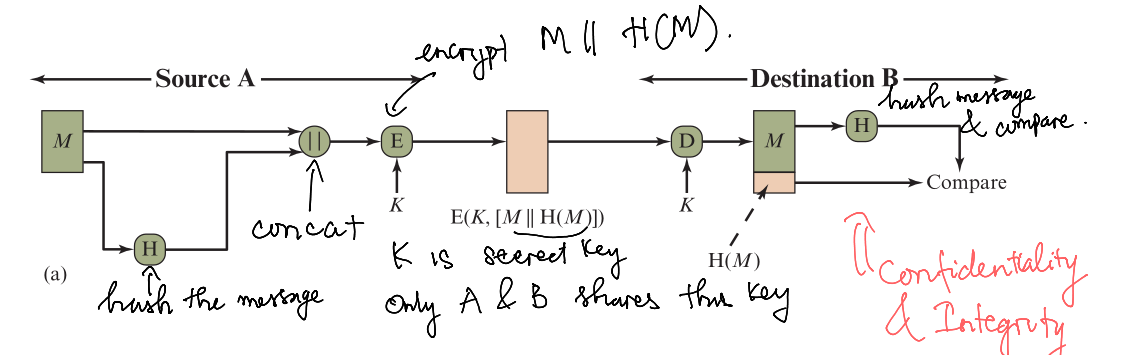 encrypt M || H(M).
Source A
Destination B
hash message
& compare.
M
||
E
D
M
H
Compare
K
K
E(K, [M || H(M)])
concat
H
H(M)
K is secret key
(a)
hash the message
Only A & B shares this key
Confidentiality
& Integrity